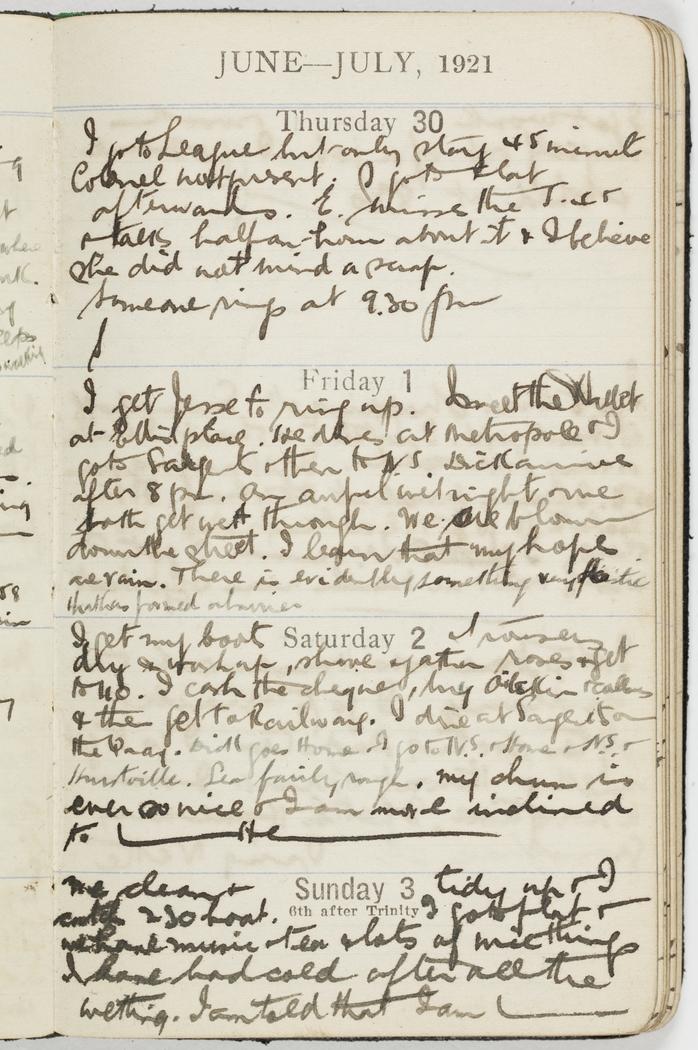 JUNE—JULY, 1921
Thursday 30
I go to League but only stay 45 minuit
Colonel not present. I go to flat
afterwards. E. misses the
& talks half an hour about it & I believe
she did not mind a scrap.
Someone rings at 9.30 pm
Friday 1
I get Jesse to ring up. I meet the
at place. We dines at Metropole & I
go to Sargents & then to N.S. Dick arrives
after 8 pm. An awful wet night & we
both get wet through. We are blown
down the street. I learn that my hopes
are vain. There is evidently something very
that has formed a barrier
Saturday 2
I get my boots & trousers
dry & wash up, shave & gather roses & get
to 40. I cash the cheque, buy
& then get to Railway. I dine at Sargents on
the Quay. Dick goes Home & I go to N.S. & Home & N.S. &
Hurstville. Sea fairly rough. my chum is
ever so nice & I am more inclined
to He
Sunday 3
6th after Trinity
We clean & tidy up & I
catch 2 30 boat. I go to flat &
we have music & tea & lots of nice things
I have had cold after all the
wetting. I am told that I am